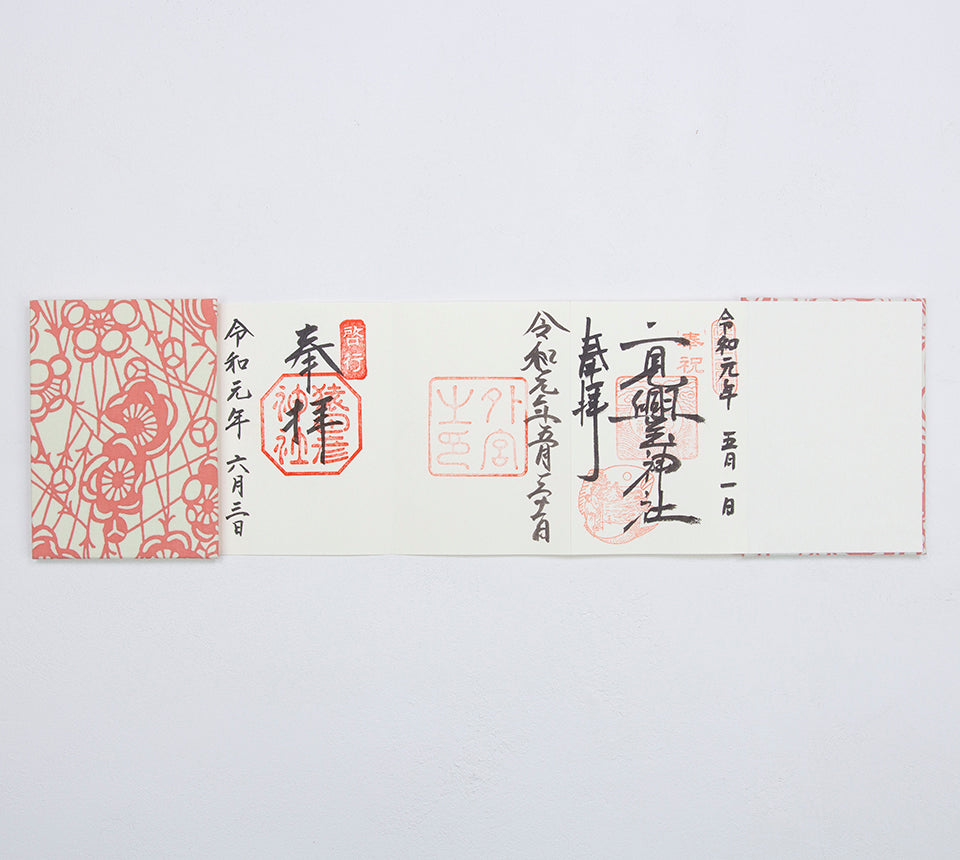 令和元年 五月一日
奉祝
二見興玉神社
奉拝
令和元年五月
外宮之印
啓行
奉拝
猿田彦神社
令和元年 六月三日